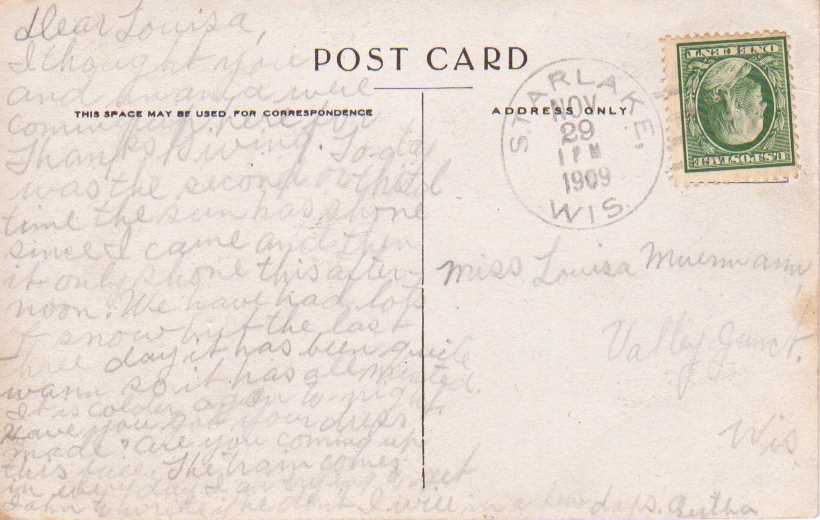 Dear Louisa,
I thought you
and mama were
coming up here for
Thanks Giving. To-day
was the second
time the sun has shone
since I came and then
it only shone this after-
noon. We have had lots
of snow but the last
three day it has been quite
warm so it has all melted.
It is colder again to night.
Have you got your dress
made? Are you coming up
this The train comes
in every day. I am trying to get
John he don't I will in a few days. Bertha
POST CARD
THIS SPACE MAY BE USED FOR CORRESPONDENCE
ADDRESS ONLY
STARLAKE,
NOV
29
1 PM
1909
WIS.
U.S. POSTAGE
ONE CENT
Miss Louisa Muermann,
Valley Junct.
Wis